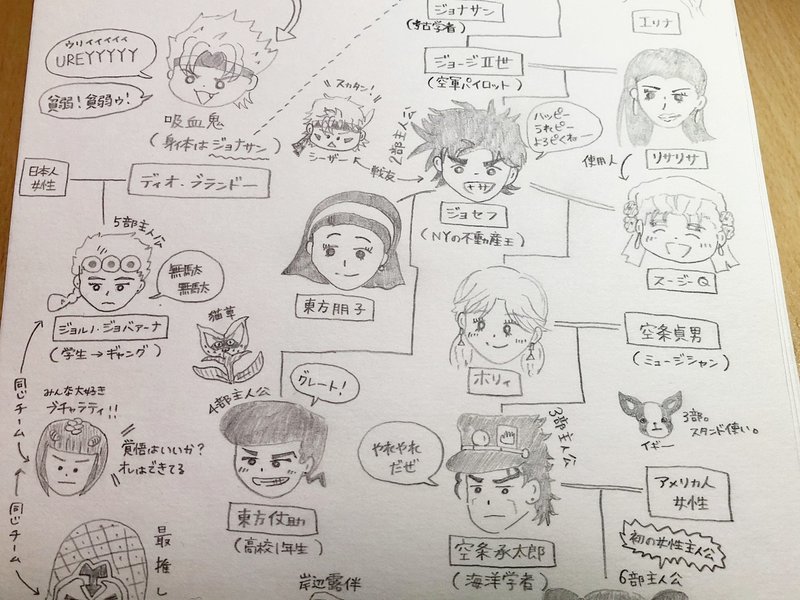 ジョナサン
(考古学者)
エリナ
ウリィイイイイ
UREYYYYY
貧弱!貧弱ゥ!
吸血鬼
(身体はジョナサン)
ジョージⅡ世
(空軍パイロット)
スカタン!
シーザー
戦友
2部主人公
ハッピー
うれピー
よろピくねー
使用人
リサリサ
日本人
女性
ディオ・ブランドー
ジョセフ
(NYの不動産王)
スージーQ
5部主人公
無駄
無駄
東方朋子
ジョルノ・ジョバァーナ
(学生→ギャング)
猫草
ホリィ
空条貞男
(ミュージシャン)
同じチーム
みんな大好き
ブチャラティ!!
覚悟はいいか?
オレはできてる
4部主人公
グレート!
やれやれ
だぜ
3部主人公
3部。
スタンド使い。
イギー
東方仗助
(高校1年生)
アメリカ人
女性
同じチーム
最推し
空条承太郎
(海洋学者)
初の女性主人公
6部主人公
岸辺露伴